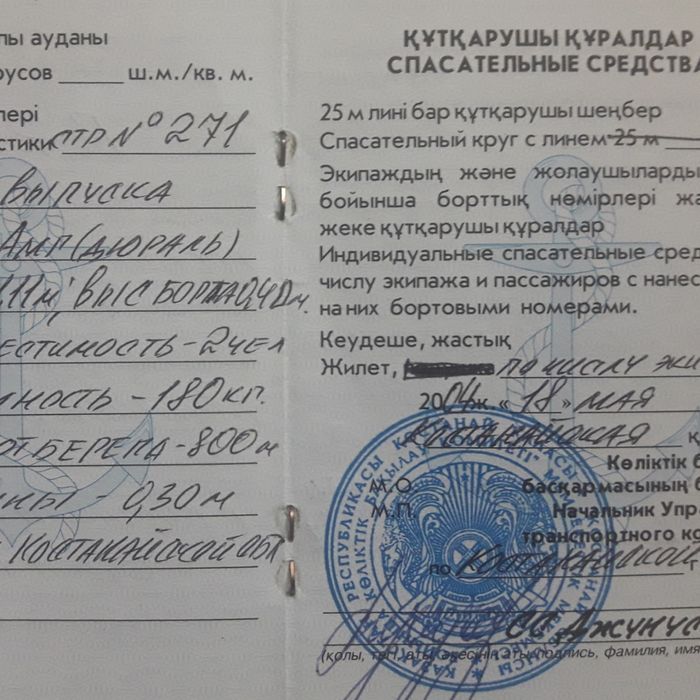 лы ауданы
русов ш.м./кв. м.
лері
стики СТР № 271
ВЫПУСКА
АМГ (ДЮРАЛЬ)
,11 м, ВЫС БОРТА 0,40 м.
ЕСТИМОСТЬ - 2 ЧЕЛ
НОСТЬ - 180 КГ.
ОТ БЕРЕГА - 800 м
НЫ - 0,30 м
КОСТАНАЙСКОЙ ОБЛ
ҚҰТҚАРУШЫ ҚҰРАЛДАР
СПАСАТЕЛЬНЫЕ СРЕДСТВА
25 м лині бар құтқарушы шеңбер
Спасательный круг с линем 25 м
Экипаждың және жолаушылардың
бойынша борттық нөмірлері жа
жеке құтқарушы құралдар
Индивидуальные спасательные сред
числу экипажа и пассажиров с нанес
на них бортовыми номерами.
Кеудеше, жастық
Жилет, ПО ЧИСЛУ ЭКИ
2004 ж. « 18 » МАЯ
КОСТАНАЙСКАЯ қ
Көліктік б
М.О. басқармасының б
М.П. Начальник Упра
транспортного ко
по КОСТАНАЙСКОЙ г
С.С. ДЖУНУС
(қолы, тегі, аты, әкесінің аты/подпись, фамилия, имя